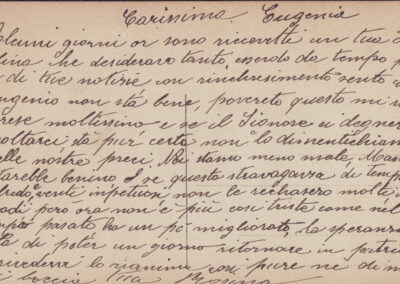 Carissima Eugenia
Alcuni giorni or sono ricevetti un tua
tina che desideravo tanto, essendo da tempo p
di tue notizie con rincrescimento sento
Eugenio non stà bene, povereto questo mi
rese moltissimo e se il Signore si degner
coltarci stà pur certa non lo dismentichiam
elle nostre preci, Noi stiamo meno male, Mam
tarebbe benino se queste stravaganza di temp
fredo, e venti impetuosi non le rechasero molti
odi però ora non è più così triste come nel
pasato, ha un po migliorato, la speranza
tà di potèr un giorno ritornare in patri
rivederla la rianima così pure ne di m
boccia tua Rosina